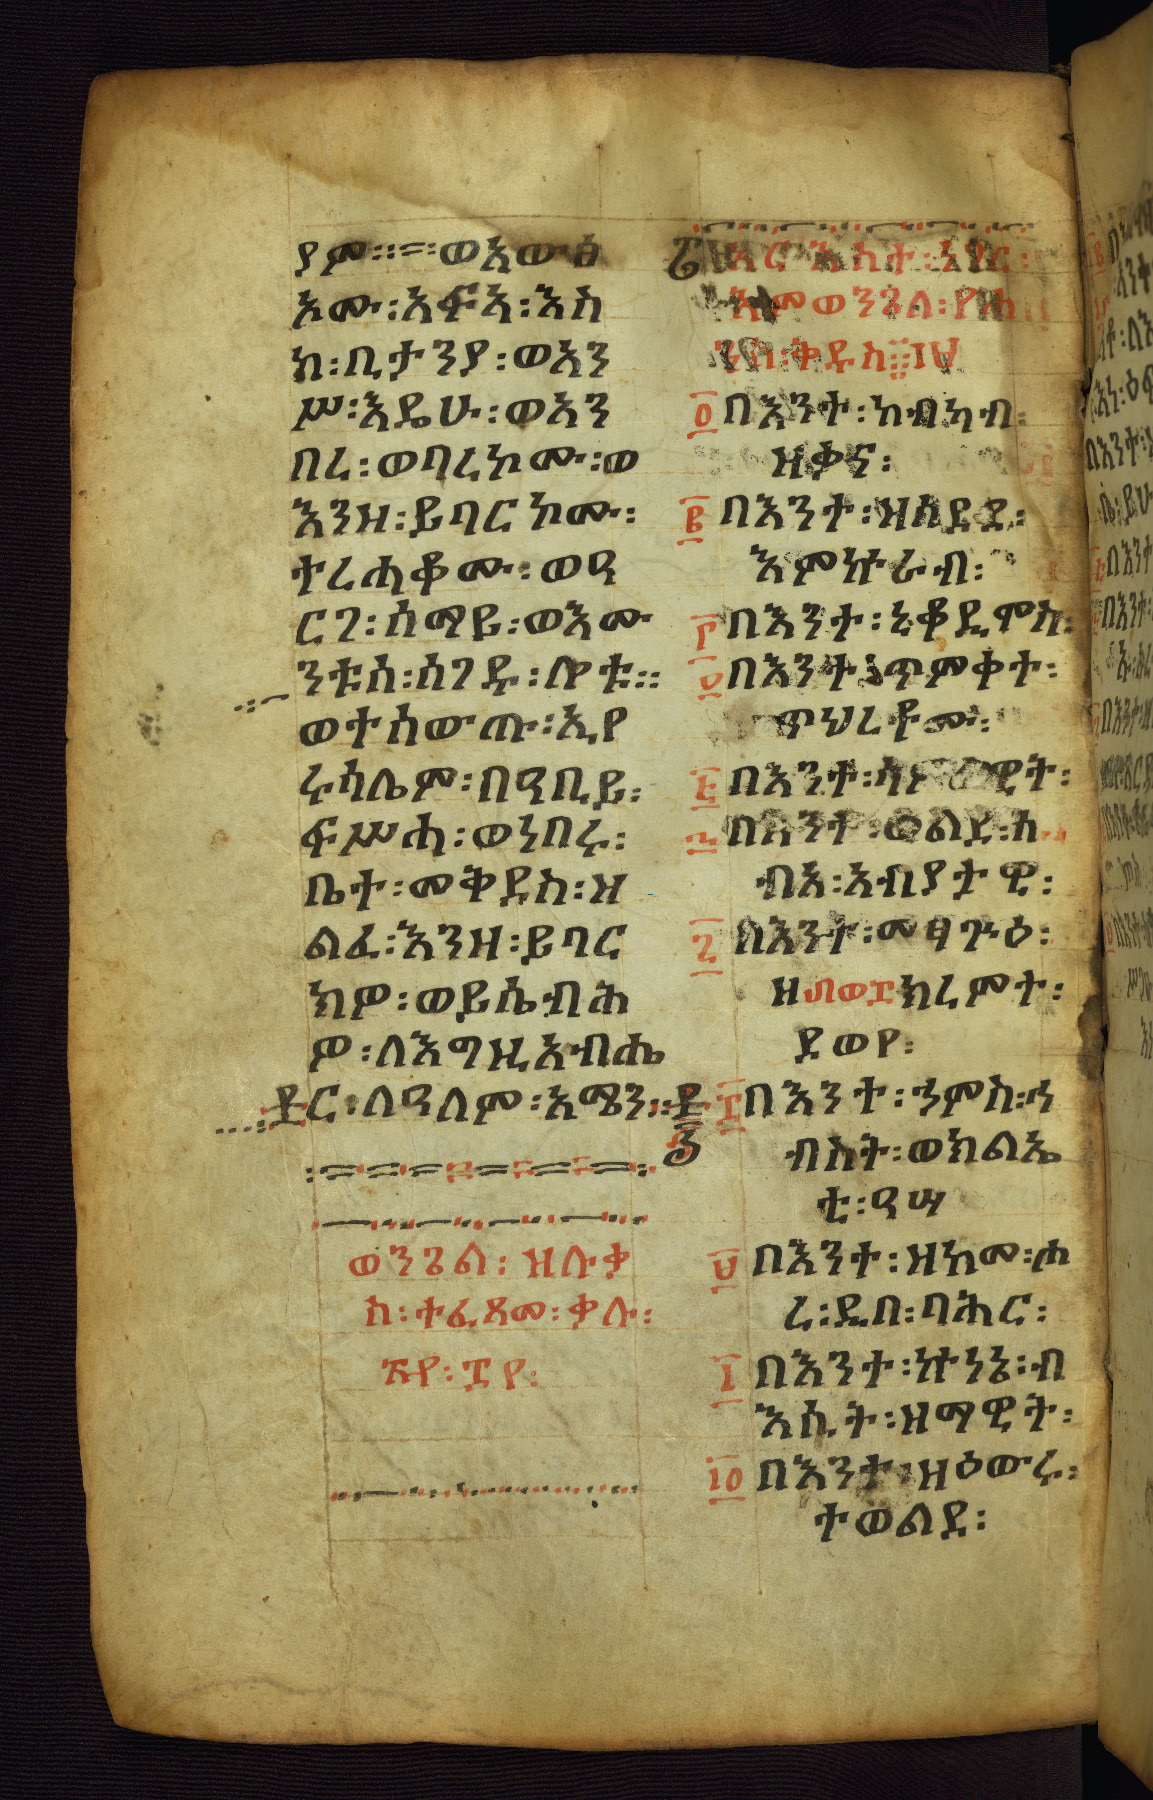 ያም። ወአውፅ
አሙ፡አፍኣ፡እስ
ከ፡ቢታንያ፡ወአን
ሥ፡እዴሁ፡ወአን
በረ፡ወባረኮሙ፡ወ
እንዘ፡ይባርኮሙ፡
ተረሐቆሙ፡ወዓ
ርገ፡ሰማይ፡ወእሙ
ንቱሰ፡ሰገዱ፡ሎቱ።
ወተሰውጡ፡ኢየ
ሩሳሌም፡በዓቢይ፡
ፍሥሐ፡ወነበሩ፡
ቤተ፡መቅደስ፡ዘ
ልፈ፡እንዘ፡ይባር
ክዎ፡ወይሴብሕ
ዎ፡ለእግዚአብሔ
ር፡ለዓለም፡አሜን።
ወንጌል፡ዘሉቃ
ስ፡ተፈጸመ፡ቃሉ፡
፳፻፡፰፻፡
አርእስተ፡ነገር፡
ዘወንጌለ፡ዮሐ
ንስ፡ቅዱስ።፲፱
፩በእንተ፡ከብካብ፡
ዘቃና፡
፪በእንተ፡ዘሰደደ፡
እምኵራብ፡
፫በእንተ፡ኒቆዲሞስ፡
፬በእንተ፡ጥምቀት፡
ጥህረቶሙ፡
፭በእንተ፡ሳምራዊት፡
፮በእንተ፡ወልደ፡ነ
ብአ፡አብያታዊ፡
፯በእንተ፡መፃጉዕ፡
ዘ፴ወ፰ክረምተ፡
ደወየ፡
፰በእንተ፡ኃምስ፡ኅ
ብስት፡ወክልኤ
ቲ፡ዓሣ
፱በእንተ፡ዘከመ፡ሐ
ረ፡ዲበ፡ባሕር፡
፲በእንተ፡ኵነኔ፡ብ
እሲት፡ዘማዊት፡
፲፩በእንተ፡ዘዕውሩ፡
ተወልደ፡